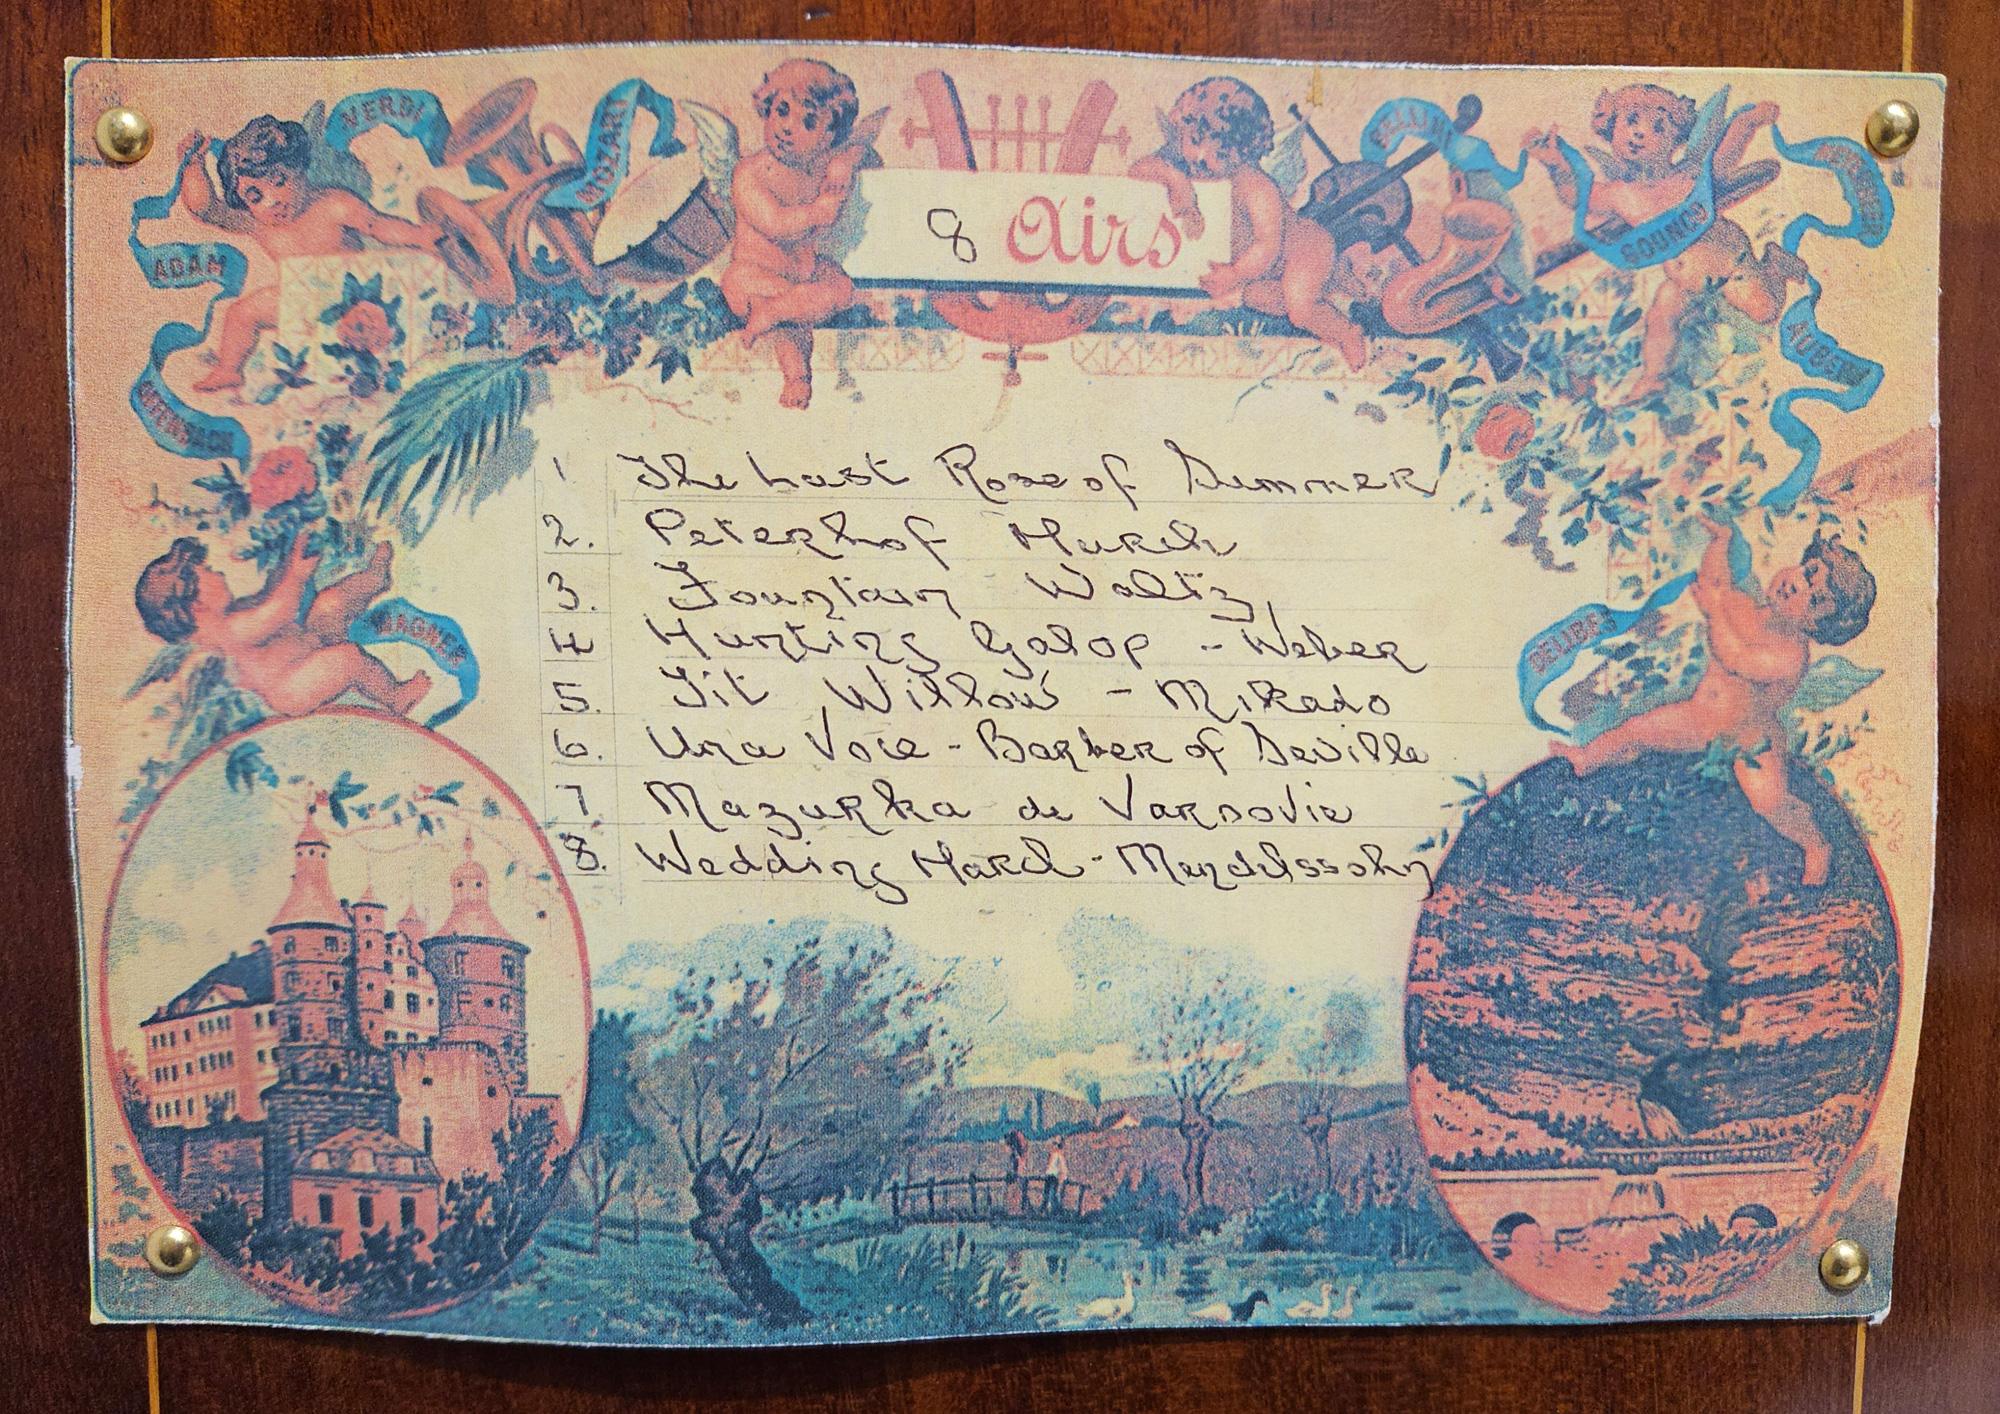 VERDI
MOZART
BELLINI
ADAM
8 Airs
GOUNOD
AUBER
OFFENBACH
WAGNER
DELIBES
1 The Last Rose of Summer
2. Peterhof March
3. Fountain Waltz,
4 Hunting Galop - Weber
5. Tit Willow - Mikado
6. Una Voce - Barber of Seville
7 Mazurka de Varsovie
8. Wedding March - Mendelssohn